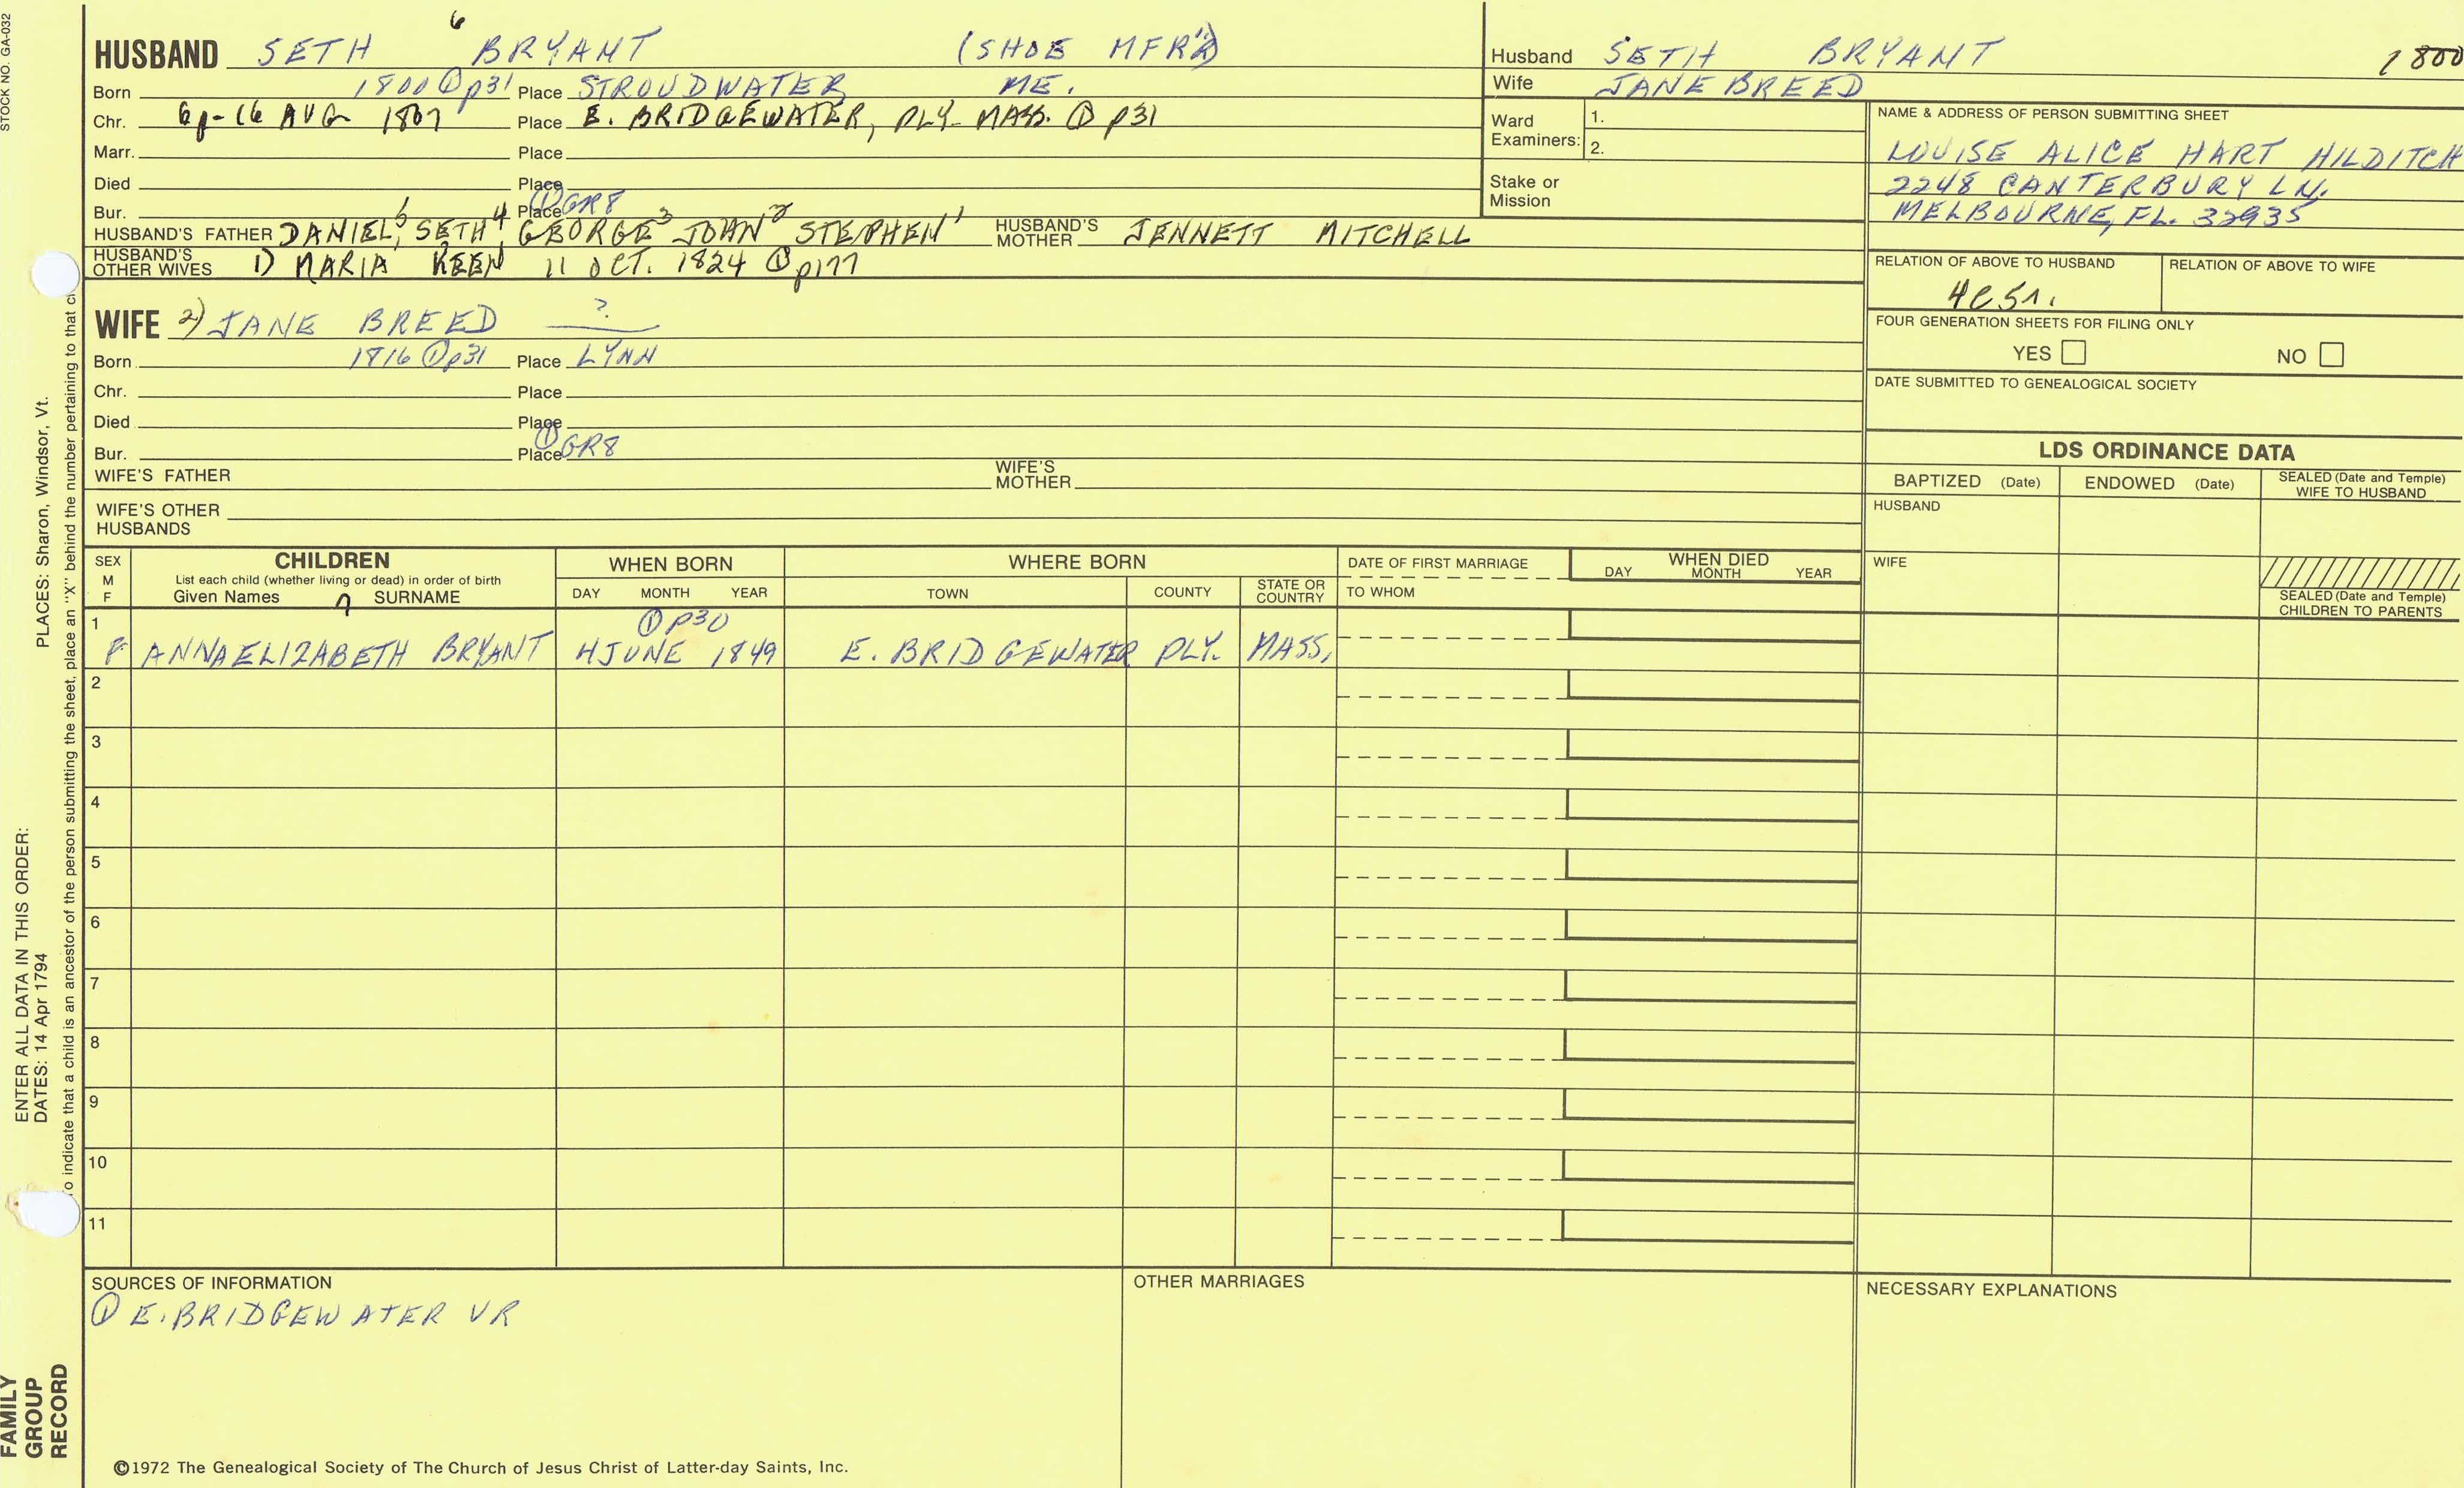 STOCK NO. GA-032
HUSBAND SETH 6 BRYANT (SHOE MFR'R)
Born 1800 ① p31 Place STROUDWATER ME.
Chr. 16 AUG 1807 Place E. BRIDGEWATER, PLY MASS. ① p31
Marr. Place
Died Place
Bur. Place ① GR8
HUSBAND'S FATHER DANIEL 5, SETH 4, GEORGE 3 JOHN 2 STEPHEN 1 HUSBAND'S MOTHER JENNETT MITCHELL
HUSBAND'S OTHER WIVES 1) MARIA KEEN 11 OCT. 1824 ① p177
WIFE 2) JANE BREED ?
Born 1816 ① p31 Place LYNN
Chr. Place
Died Place
Bur. Place ① GR8
WIFE'S FATHER WIFE'S MOTHER
WIFE'S OTHER HUSBANDS
Husband SETH BRYANT 1800
Wife JANE BREED
Ward Examiners: 1. 2.
Stake or Mission
NAME & ADDRESS OF PERSON SUBMITTING SHEET
LOUISE ALICE HART HILDITCH
2248 CANTERBURY LN.
MELBOURNE, FL. 32935
RELATION OF ABOVE TO HUSBAND RELATION OF ABOVE TO WIFE
FOUR GENERATION SHEETS FOR FILING ONLY
YES NO
DATE SUBMITTED TO GENEALOGICAL SOCIETY
LDS ORDINANCE DATA
BAPTIZED (Date) ENDOWED (Date) SEALED (Date and Temple) WIFE TO HUSBAND
HUSBAND
WIFE
SEALED (Date and Temple) CHILDREN TO PARENTS
SEX M F CHILDREN WHEN BORN WHERE BORN DATE OF FIRST MARRIAGE WHEN DIED
List each child (whether living or dead) in order of birth
Given Names 7 SURNAME DAY MONTH YEAR TOWN COUNTY STATE OR COUNTRY TO WHOM DAY MONTH YEAR
1 ① P30
F ANNA ELIZABETH BRYANT 4 JUNE 1849 E. BRIDGEWATER PLY. MASS,
2
3
4
5
6
7
8
9
10
11
SOURCES OF INFORMATION
① E. BRIDGEWATER VR
OTHER MARRIAGES
NECESSARY EXPLANATIONS
©1972 The Genealogical Society of The Church of Jesus Christ of Latter-day Saints, Inc.
ENTER ALL DATA IN THIS ORDER:
DATES: 14 Apr 1794 PLACES: Sharon, Windsor, Vt.
o indicate that a child is an ancestor of the person submitting the sheet, place an "X" behind the number pertaining to that
FAMILY
GROUP
RECORD